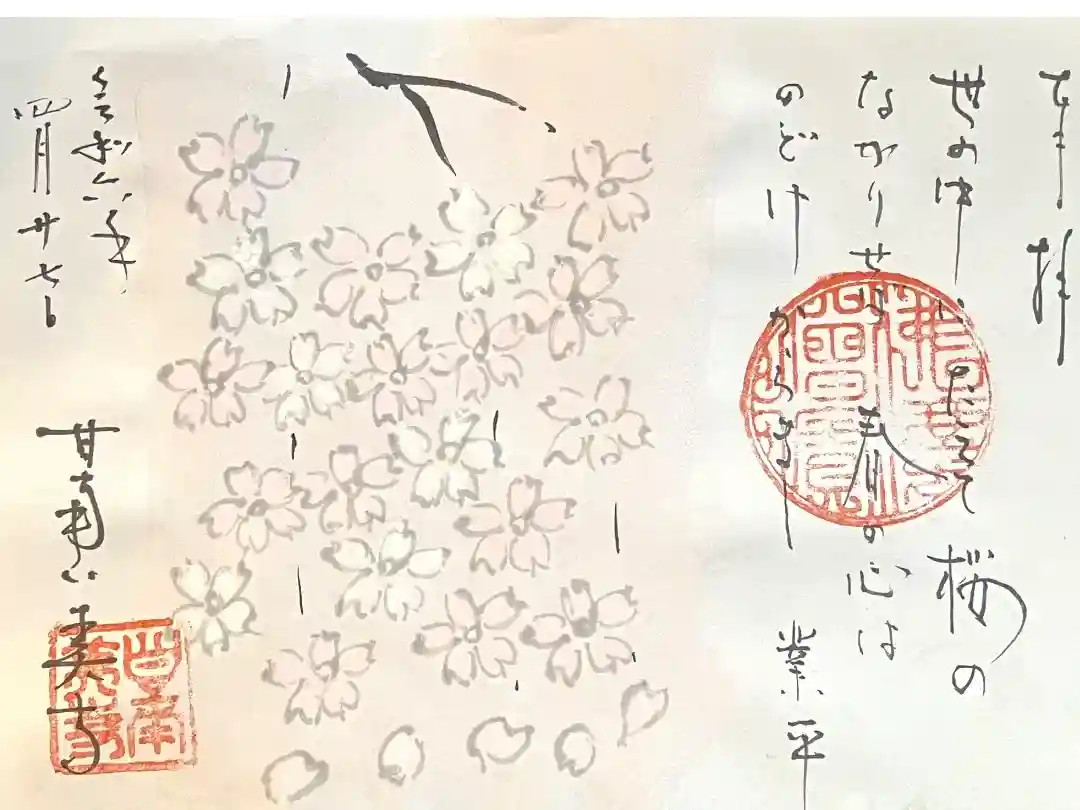 奉拝
世の中にたえて桜の
なかりせば春の心は
のどけからまし 業平
佛法僧寶
令和六年
四月廿七日
甘南美寺
甘南美寺